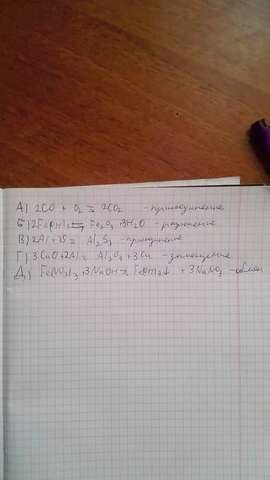 А) 2CO + O2 = 2CO2 - присоединение
Б) 2Fe(OH)3 = Fe2O3 + 3H2O - разложение
В) 2Al + 3S = Al2S3 - присоединение
Г) 3CuO + 2Al = Al2O3 + 3Cu - замещение
Д) Fe(NO3)3 + 3NaOH = Fe(OH)3↓ + 3NaNO3 - обмен